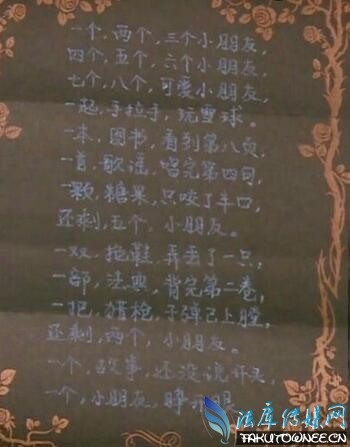 一个，两个，三个小朋友，
四个，五个，六个小朋友，
七个，八个，可爱小朋友，
一起，手拉手，玩雪球。
一本，图书，看到第八页，
一首，歌谣，唱完第四句，
一颗，糖果，只咬了半口，
还剩，五个，小朋友。
一双，拖鞋，弄丢了一只，
一部，法典，背完第二卷，
一把，猎枪，子弹已上膛，
还剩，两个，小朋友。
一个，故事，还没说开头，
一个，小朋友，睁开眼
法库传媒网
TAKUTOWNEE.CN